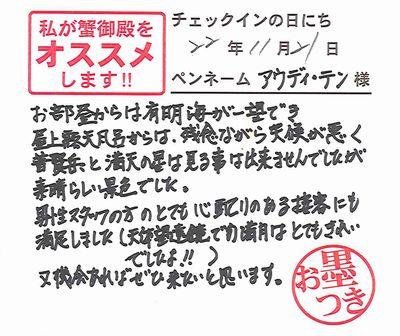 私が蟹御殿を
オススメ
します!!
チェックインの日にち
22年11月21日
ペンネーム アウディ・テン 様
お部屋からは有明海が一望でき
屋上露天風呂からは、残念ながら天候が悪く
普賢岳と満天の星は見る事は出来ませんでしたが
素晴らしい景色でした。
男性スタッフの方のとても心配りのある接客にも
満足しました(天体望遠鏡での満月はとてもきれい
でしたよ!!)
又機会あればぜひ来たいと思います。
お墨
つき